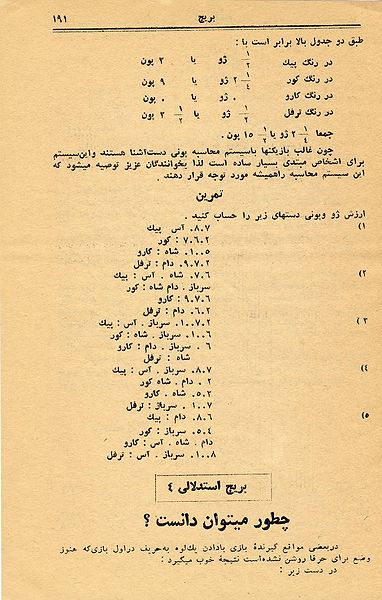 بریج ۱۹۱
طبق دو جدول بالا برابر است با :
در رنگ پیك ۱/۲ ژو یا ۳ پون
در رنگ كور ۲ ۱/۴ ژو یا ۹ پون
در رنگ كارو ۰ ژو یا ۰ پون
در رنگ ترفل ۱/۲ ژو یا ۳ ۱/۲ پون
جمعا ۲ ۱/۴ ژو یا ۱۵ ۱/۲ پون .
چون غالب بازیكنها باسیستم محاسبه پونی دست‌آشنا هستند واین‌سیستم
برای اشخاص مبتدی بسیار ساده است لذا بخوانندگان عزیز توصیه میشود كه
این سیستم محاسبه راهمیشه مورد توجه قرار دهند .
تمرین
ارزش ژو وپونی دستهای زیر را حساب كنید .
۱) ۸.۷. آس پیك
۷.۶.۲ : كور
۱۰.۵. شاه : كارو
۹.۷.۲. دام : ترفل
۲) ۷.۶. شاه . آس : پیك
سرباز . دام شاه : كور
۹.۷.۶ : كارو
۶.۲. دام : ترفل
۳) ۱۰.۷.۲. سرباز . آس : پیك
۱۰.۶. سرباز . شاه : كور
۶ . سرباز . دام : كارو
شاه : ترفل
۴) ۸.۷. سرباز . آس : پیك
۲ . دام . شاه كور
۵.۲. شاه . كارو
۱۰.۷ . سرباز : ترفل
۵) ۸.۶. دام : پیك
۵.۴. سرباز : كور
دام . شاه . آس : كارو
۱۰.۸ . سرباز . آس : ترفل
بریج استدلالی ۴
چطور میتوان دانست ؟
دربعضی مواقع گیرندهٔ بازی بادادن یك‌لوه به‌حریف دراول بازی‌كه هنوز
وضع برای حرفا روشن نشده‌است نتیجهٔ خوب میگیرد :
در دست زیر :